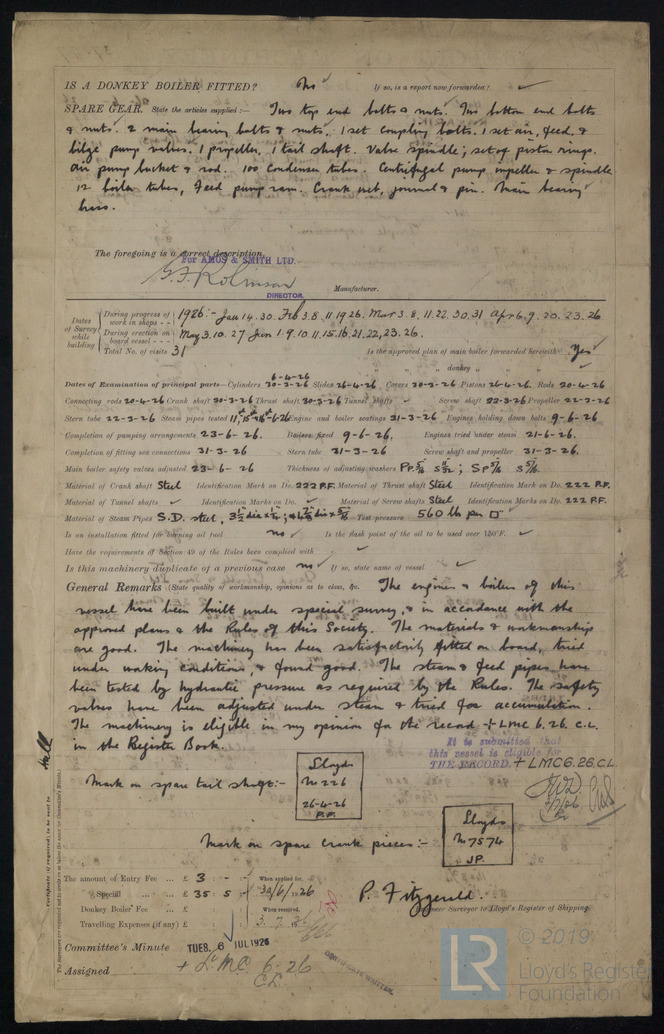 IS A DONKEY BOILER FITTED? No ✓ If so, is a report now forwarded? ✓
SPARE GEAR. State the articles supplied:— Two top end bolts & nuts. Two bottom end bolts
& nuts. 2 main bearing bolts & nuts, 1 set coupling bolts. 1 set air, feed, &
bilge pump valves. 1 propeller, 1 tail shaft. Valve spindle; set of piston rings.
Air pump bucket & rod. 100 Condenser tubes. Centrifugal pump impeller & spindle
12 boiler tubes, Feed pump ram. Crank web, journal & pin. Main bearing
brass.
The foregoing is a correct description,
FOR AMOS & SMITH LTD.
Robinson
DIRECTOR. Manufacturer.
Dates of Survey while building
During progress of work in shops - - 1926:- Jan 14. 30. Feb 3. 8. 11 19 26. Mar 3. 8. 11. 22. 30. 31 Apr 6. 9. 20. 23. 26
During erection on board vessel - - - May 3. 10. 27 Jun 1. 9. 10. 11. 15. 16. 21. 22, 23. 26.
Total No. of visits 31 Is the approved plan of main boiler forwarded herewith Yes ✓
" " " donkey " " " ✓
6-4-26
Dates of Examination of principal parts—Cylinders 30-3-26 Slides 26-4-26 Covers 30-3-26 Pistons 26-4-26. Rods 20-4-26
Connecting rods 20-4-26 Crank shaft 30-3-26 Thrust shaft 30-3-26 Tunnel shafts ✓ Screw shaft 22-3-26 Propeller 22-3-26
Stern tube 22-3-26 Steam pipes tested 11, 15 & 16-6-26 Engine and boiler seatings 31-3-26 Engines holding down bolts 9-6-26
Completion of pumping arrangements 23-6-26. Boilers fixed 9-6-26. Engines tried under steam 21-6-26.
Completion of fitting sea connections 31-3-26 Stern tube 31-3-26 Screw shaft and propeller 31-3-26.
Main boiler safety valves adjusted 23-6-26 Thickness of adjusting washers
Material of Crank shaft Steel Identification Mark on Do. 222 P.F. Material of Thrust shaft Steel Identification Mark on Do. 222 P.F.
Material of Tunnel shafts ✓ Identification Marks on Do. ✓ Material of Screw shafts Steel Identification Marks on Do. 222 P.F.
Material of Steam Pipes S.D. steel, Test pressure 560 lb per □"
Is an installation fitted for burning oil fuel no ✓ Is the flash point of the oil to be used over 150°F. ✓
Have the requirements of Section 49 of the Rules been complied with ✓
Is this machinery duplicate of a previous case no ✓ If so, state name of vessel ✓
General Remarks (State quality of workmanship, opinions as to class, &c. The engines & boilers of this
vessel have been built under special survey, & in accordance with the
approved plans & the Rules of this Society. The materials & workmanship
are good. The machinery has been satisfactorily fitted on board, tried
under working conditions & found good. The steam & feed pipes have
been tested by hydraulic pressure as required by the Rules. The safety
valves have been adjusted under steam & tried for accumulation.
The machinery is eligible in my opinion for the record + LMC 6. 26. C.L.
in the Register Book.
It is submitted that
this vessel is eligible for
THE RECORD. + LMC 6. 26. CL
Mark on spare tail shaft:-
Lloyds
No 226
26-4-26
P.F.
Mark on spare crank pieces:-
Lloyds
No 7574
JP.
Certificate (if required) to be sent to Hull
The amount of Entry Fee ... £ 3 : - : When applied for,
Special ... ... £ 35 : 5 : 30/6/1926
Donkey Boiler Fee ... £ : : When received,
Travelling Expenses (if any) £ : : 3. 7. 26
P. Fitzgerald.
Surveyor to Lloyd's Register of Shipping.
Committee's Minute TUES. 6 JUL 1926
Assigned + LMC 6-26
CL.
CERTIFICATE WRITTEN
LR © 2019
Lloyd's Register
Foundation